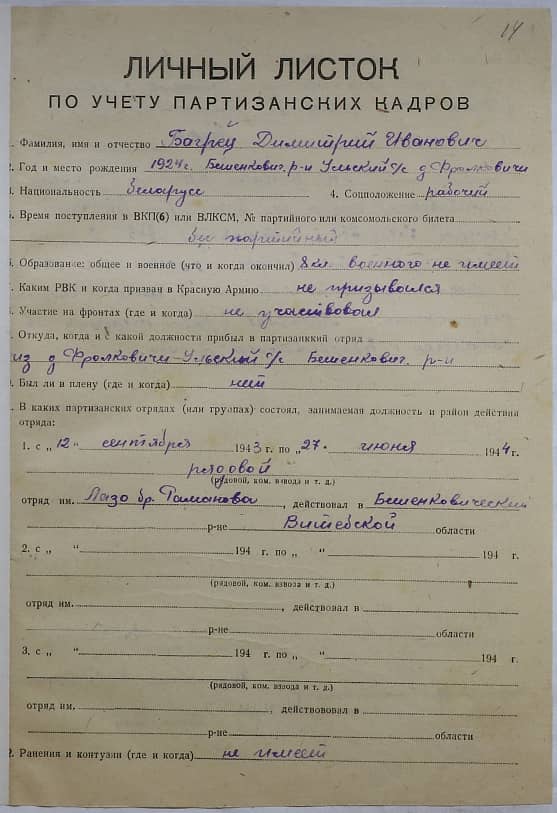 14
ЛИЧНЫЙ ЛИСТОК
ПО УЧЕТУ ПАРТИЗАНСКИХ КАДРОВ
1. Фамилия, имя и отчество Багрец Димитрий Иванович
2. Год и место рождения 1924 г. Бешенкович. р-н Ульский с/с д Фролковичи
3. Национальность беларусс 4. Соцположение рабочий
5. Время поступления в ВКП(б) или ВЛКСМ, № партийного или комсомольского билета
бес партийный
6. Образование: общее и военное (что и когда окончил) 8 кл. военного не имеет
7. Каким РВК и когда призван в Красную Армию не призывался
8. Участие на фронтах (где и когда) не участвовал
9. Откуда, когда и с какой должности прибыл в партизанккий отряд
из д Фролковичи-Ульский с/с Бешенкович. р-н
10. Был ли в плену (где и когда) нет
11. В каких партизанских отрядах (или группах) состоял, занимаемая должность и район действия
отряда:
1. с „ 12 " сентября 1943 г. по „ 27 " июня 1944 г.
рядовой
(рядовой, ком. взвода и т. д.)
отряд им. Лазо бр. Романова, действовал в Бешенковический
р-не Витебской области
2. с „ " 194 г. по „ " 194 г.
(рядовой, ком. взвоза и т. д.)
отряд им. , действовал в
р-не области
3. с „ " 194 г. по „ " 194 г.
(рядовой, ком. взвода и т. д.)
отряд им. , действововал в
р-не области
12. Ранения и контузии (где и когда) не имеет